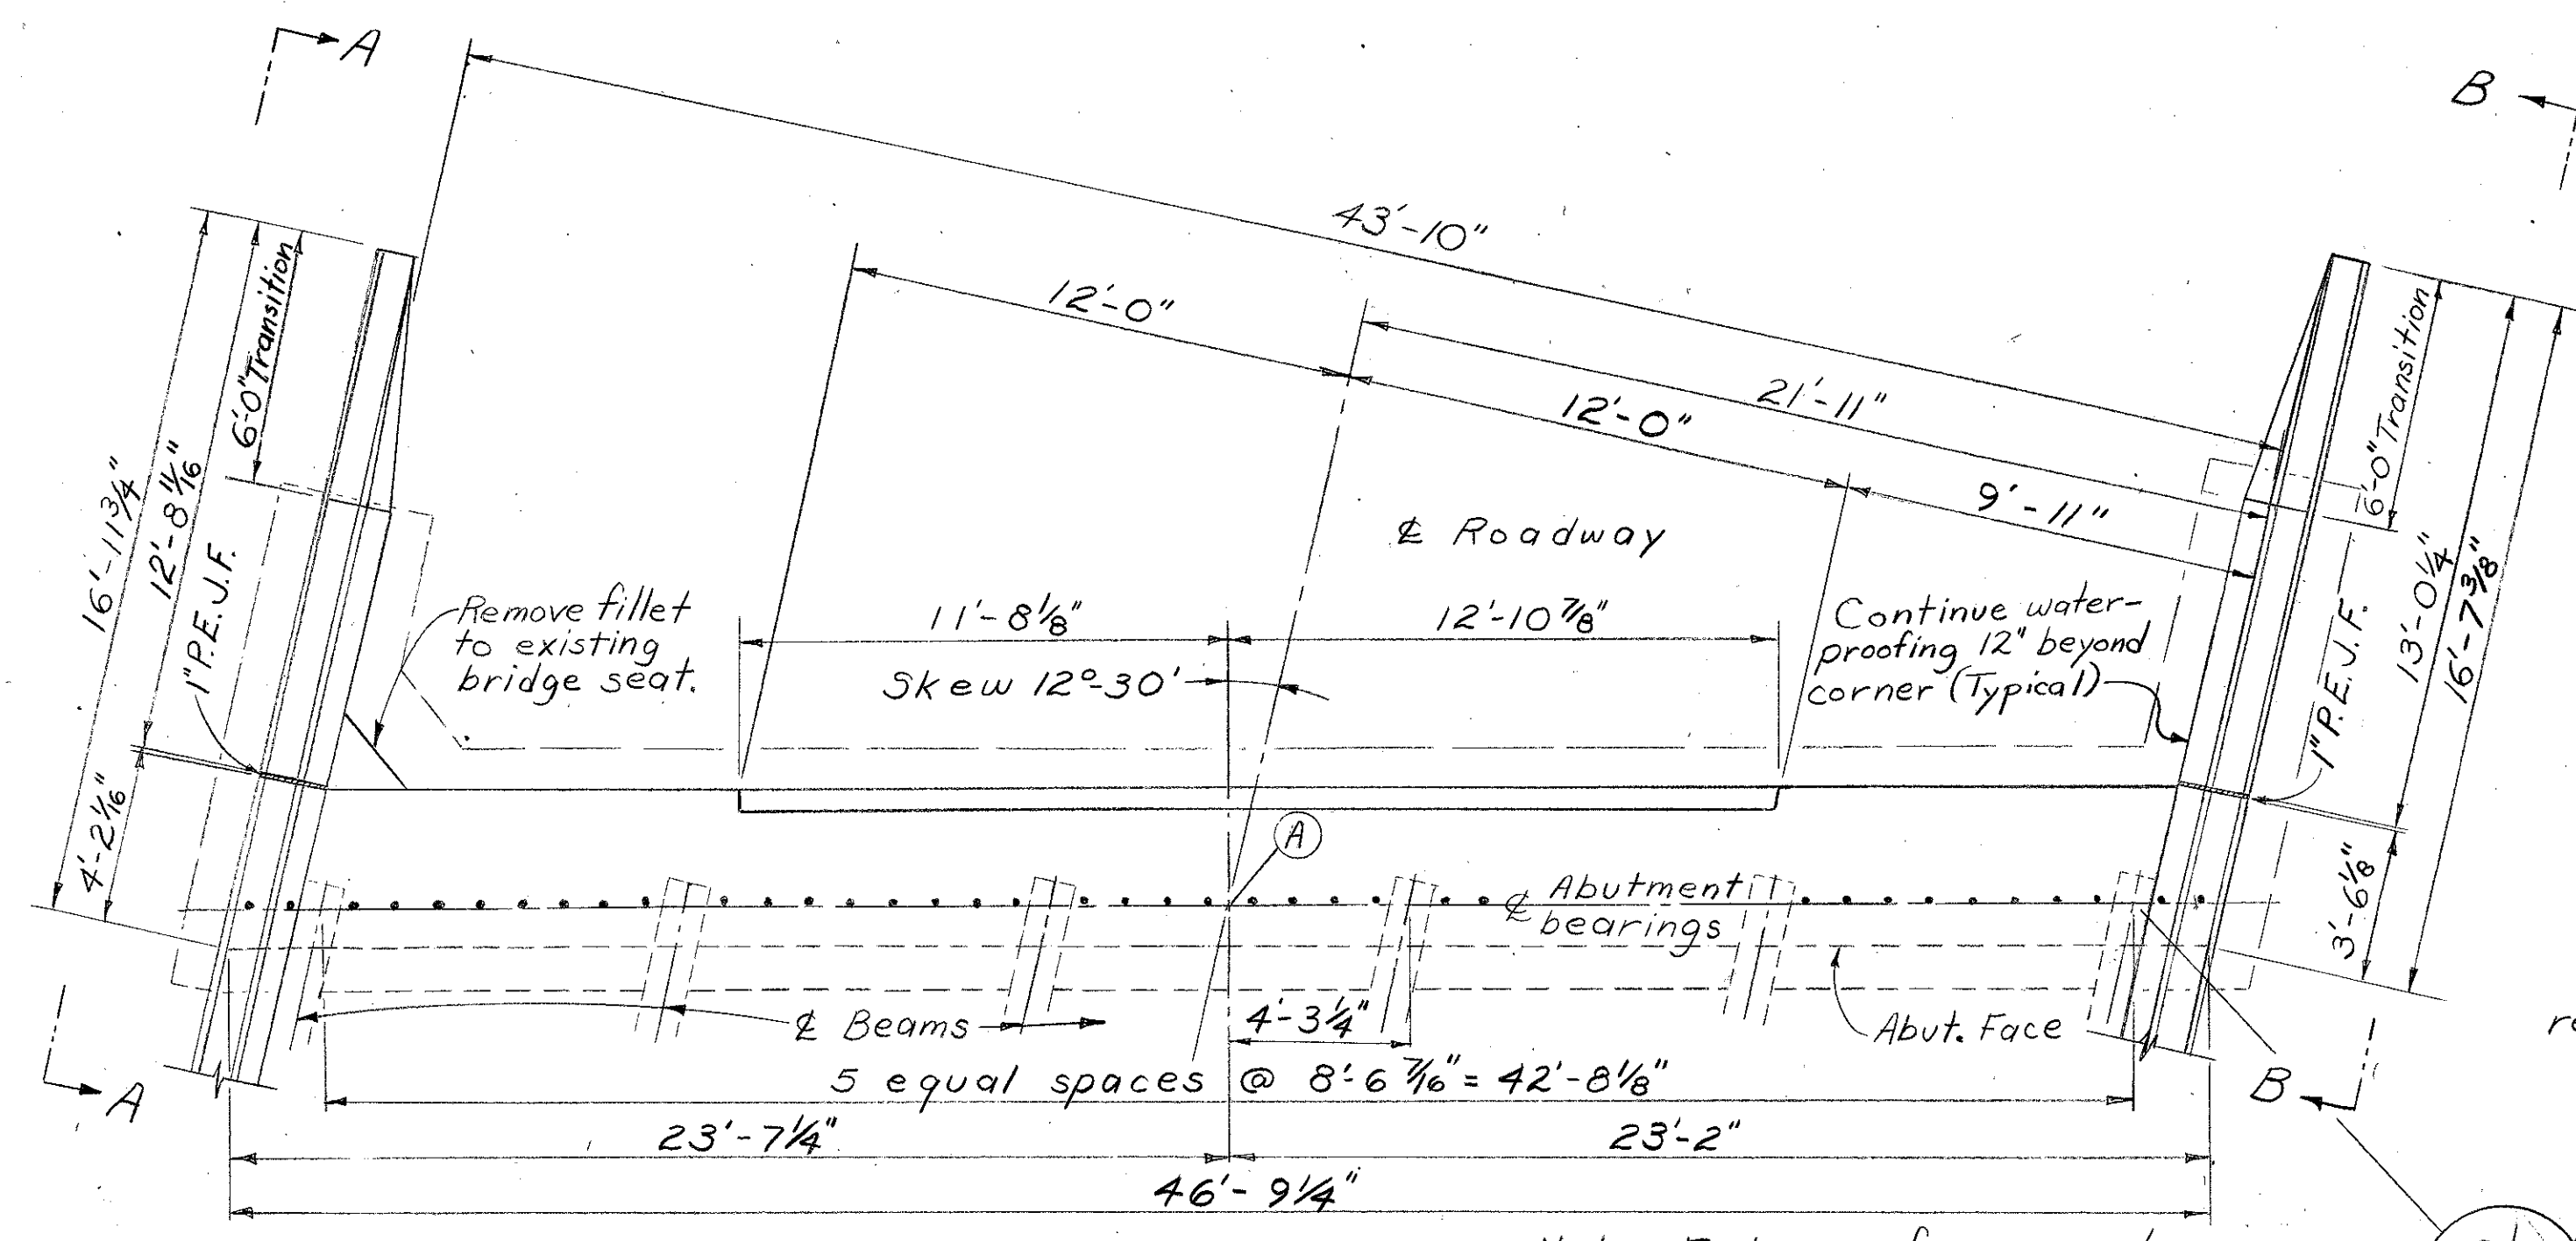 A
B
43'-10"
12'-0"
21'-11"
12'-0"
9'-11"
6'-0" Transition
12'-8 11/16"
16'-11 3/4"
4'-2 1/16"
1" P.E.J.F.
Remove fillet
to existing
bridge seat.
℄ Roadway
11'-8 1/8"
12'-10 7/8"
Skew 12°-30'
Continue water-
proofing 12" beyond
corner (Typical)
6'-0" Transition
13'-0 1/4"
16'-7 3/8"
3'-6 1/8"
1" P.E.J.F.
A
℄ Abutment
bearings
℄ Beams
4'-3 1/4"
Abut. Face
5 equal spaces @ 8'-6 7/16" = 42'-8 1/8"
A
B
23'-7 1/4"
23'-2"
46'-9 1/4"